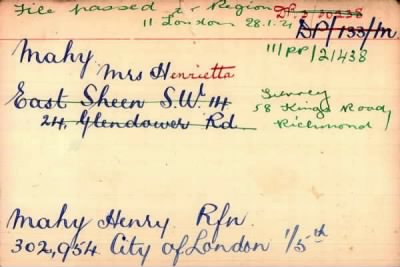 File passed to Region
11 London 28.1.21
DP/133/M
111/PP/21438
Mahy
Mrs Henrietta
East Sheen S.W. 14
24, Glendower Rd
Surrey
58 Kings Road
Richmond
Mahy Henry Rfn
302,954 City of London 1/5th